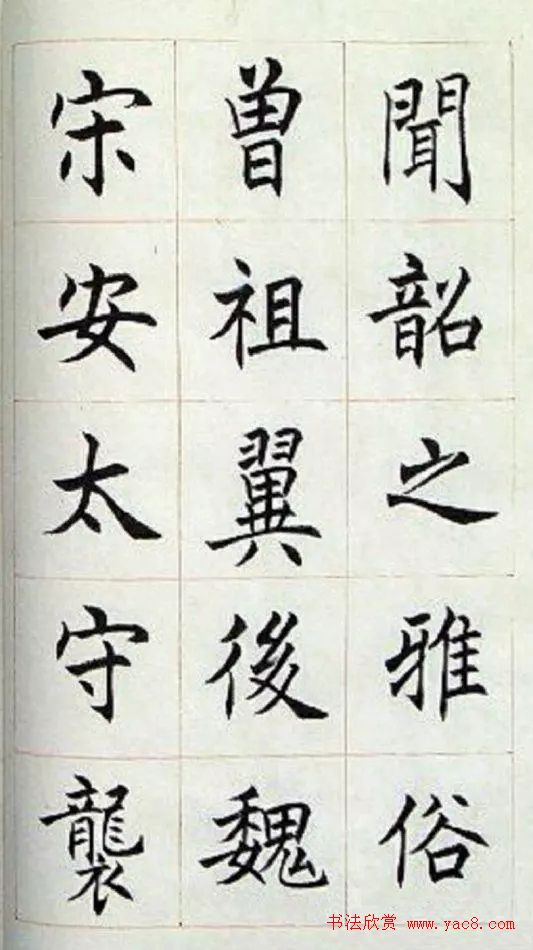 聞韶之雅俗
曾祖翼後魏
宋安太守襲
书法欣赏 www.yac8.com